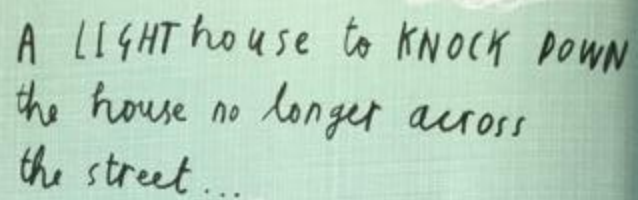 A LIGHThouse to KNOCK DOWN
the house no longer across
the street...